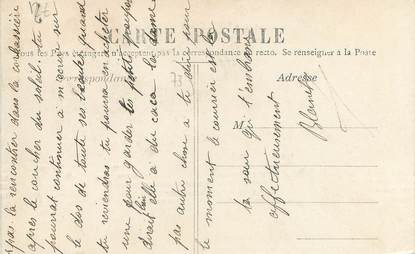 CARTE POSTALE
Tous les Pays étrangers n'acceptent pas la correspondance au recto. Se renseigner à la Poste
Correspondance
Adresse
M
pas la rencontrer dans la
après le coucher du soleil. tu
pourrait continuer à m'écrire sur
le dos de toute ses quand
tu reviendras tu pourra en acheter
une pour garder petit
dirait elle a du caca la dame
pas autre chose à te dire pour
le moment le courrier est
ta sœur qui t'embrasse
affectueusement